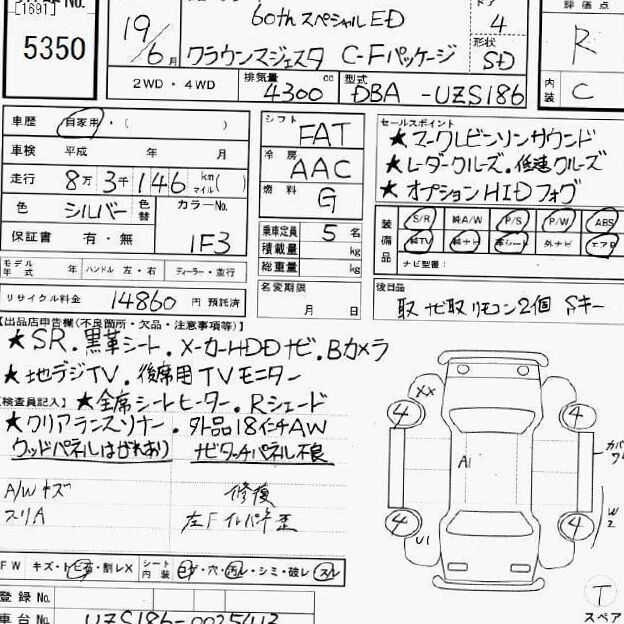 [169T] No.
5350
19/6月
60thスペシャルED
クラウンマジェスタ C-Fパッケージ
ドア 4
形状 SD
評価点 R
内装 C
2WD・4WD
排気量 4300 cc
型式 DBA -UZS186
車歴 自家用・( )
車検 平成 年 月
走行 8万3千146 km マイル( )
色 シルバー 色替 カラーNo. 1F3
保証書 有・無
モデル年式 年 ハンドル 左・右 ディーラー・並行
リサイクル料金 14860円 預託済
シフト FAT
冷房 AAC
燃料 G
乗車定員 5名
積載量 kg
総重量 kg
名変期限 月 日
セールスポイント
★マークレビンソンサウンド
★レーダークルーズ・低速クルーズ
★オプションHIDフォグ
装備品 S/R 純A/W P/S P/W ABS
純TV 純ナビ 革シート 外ナビ エアB
ナビ型番:
後日品
取 ナビ取 リモコン2個 Sキー
【出品店申告欄(不良箇所・欠品・注意事項等)】
★SR.黒革シート.メーカーHDDナビ.Bカメラ
★地デジTV.後席用TVモニター
【検査員記入】★全席シートヒーター.Rシェード
★クリアランスソナー.外品18インチAW
ウッドパネルはがれあり ナビタッチパネル不良
A/Wキズ 修復
スリA 左Fインパネ歪
FW キズ・トビ石・割レX シート内装 コゲ・穴・汚レ・シミ・破レ スレ
登録No.
車台No. UZS186-0025413
XX
4
4
A1
カバー
4
4
U1
W2
T
スペア